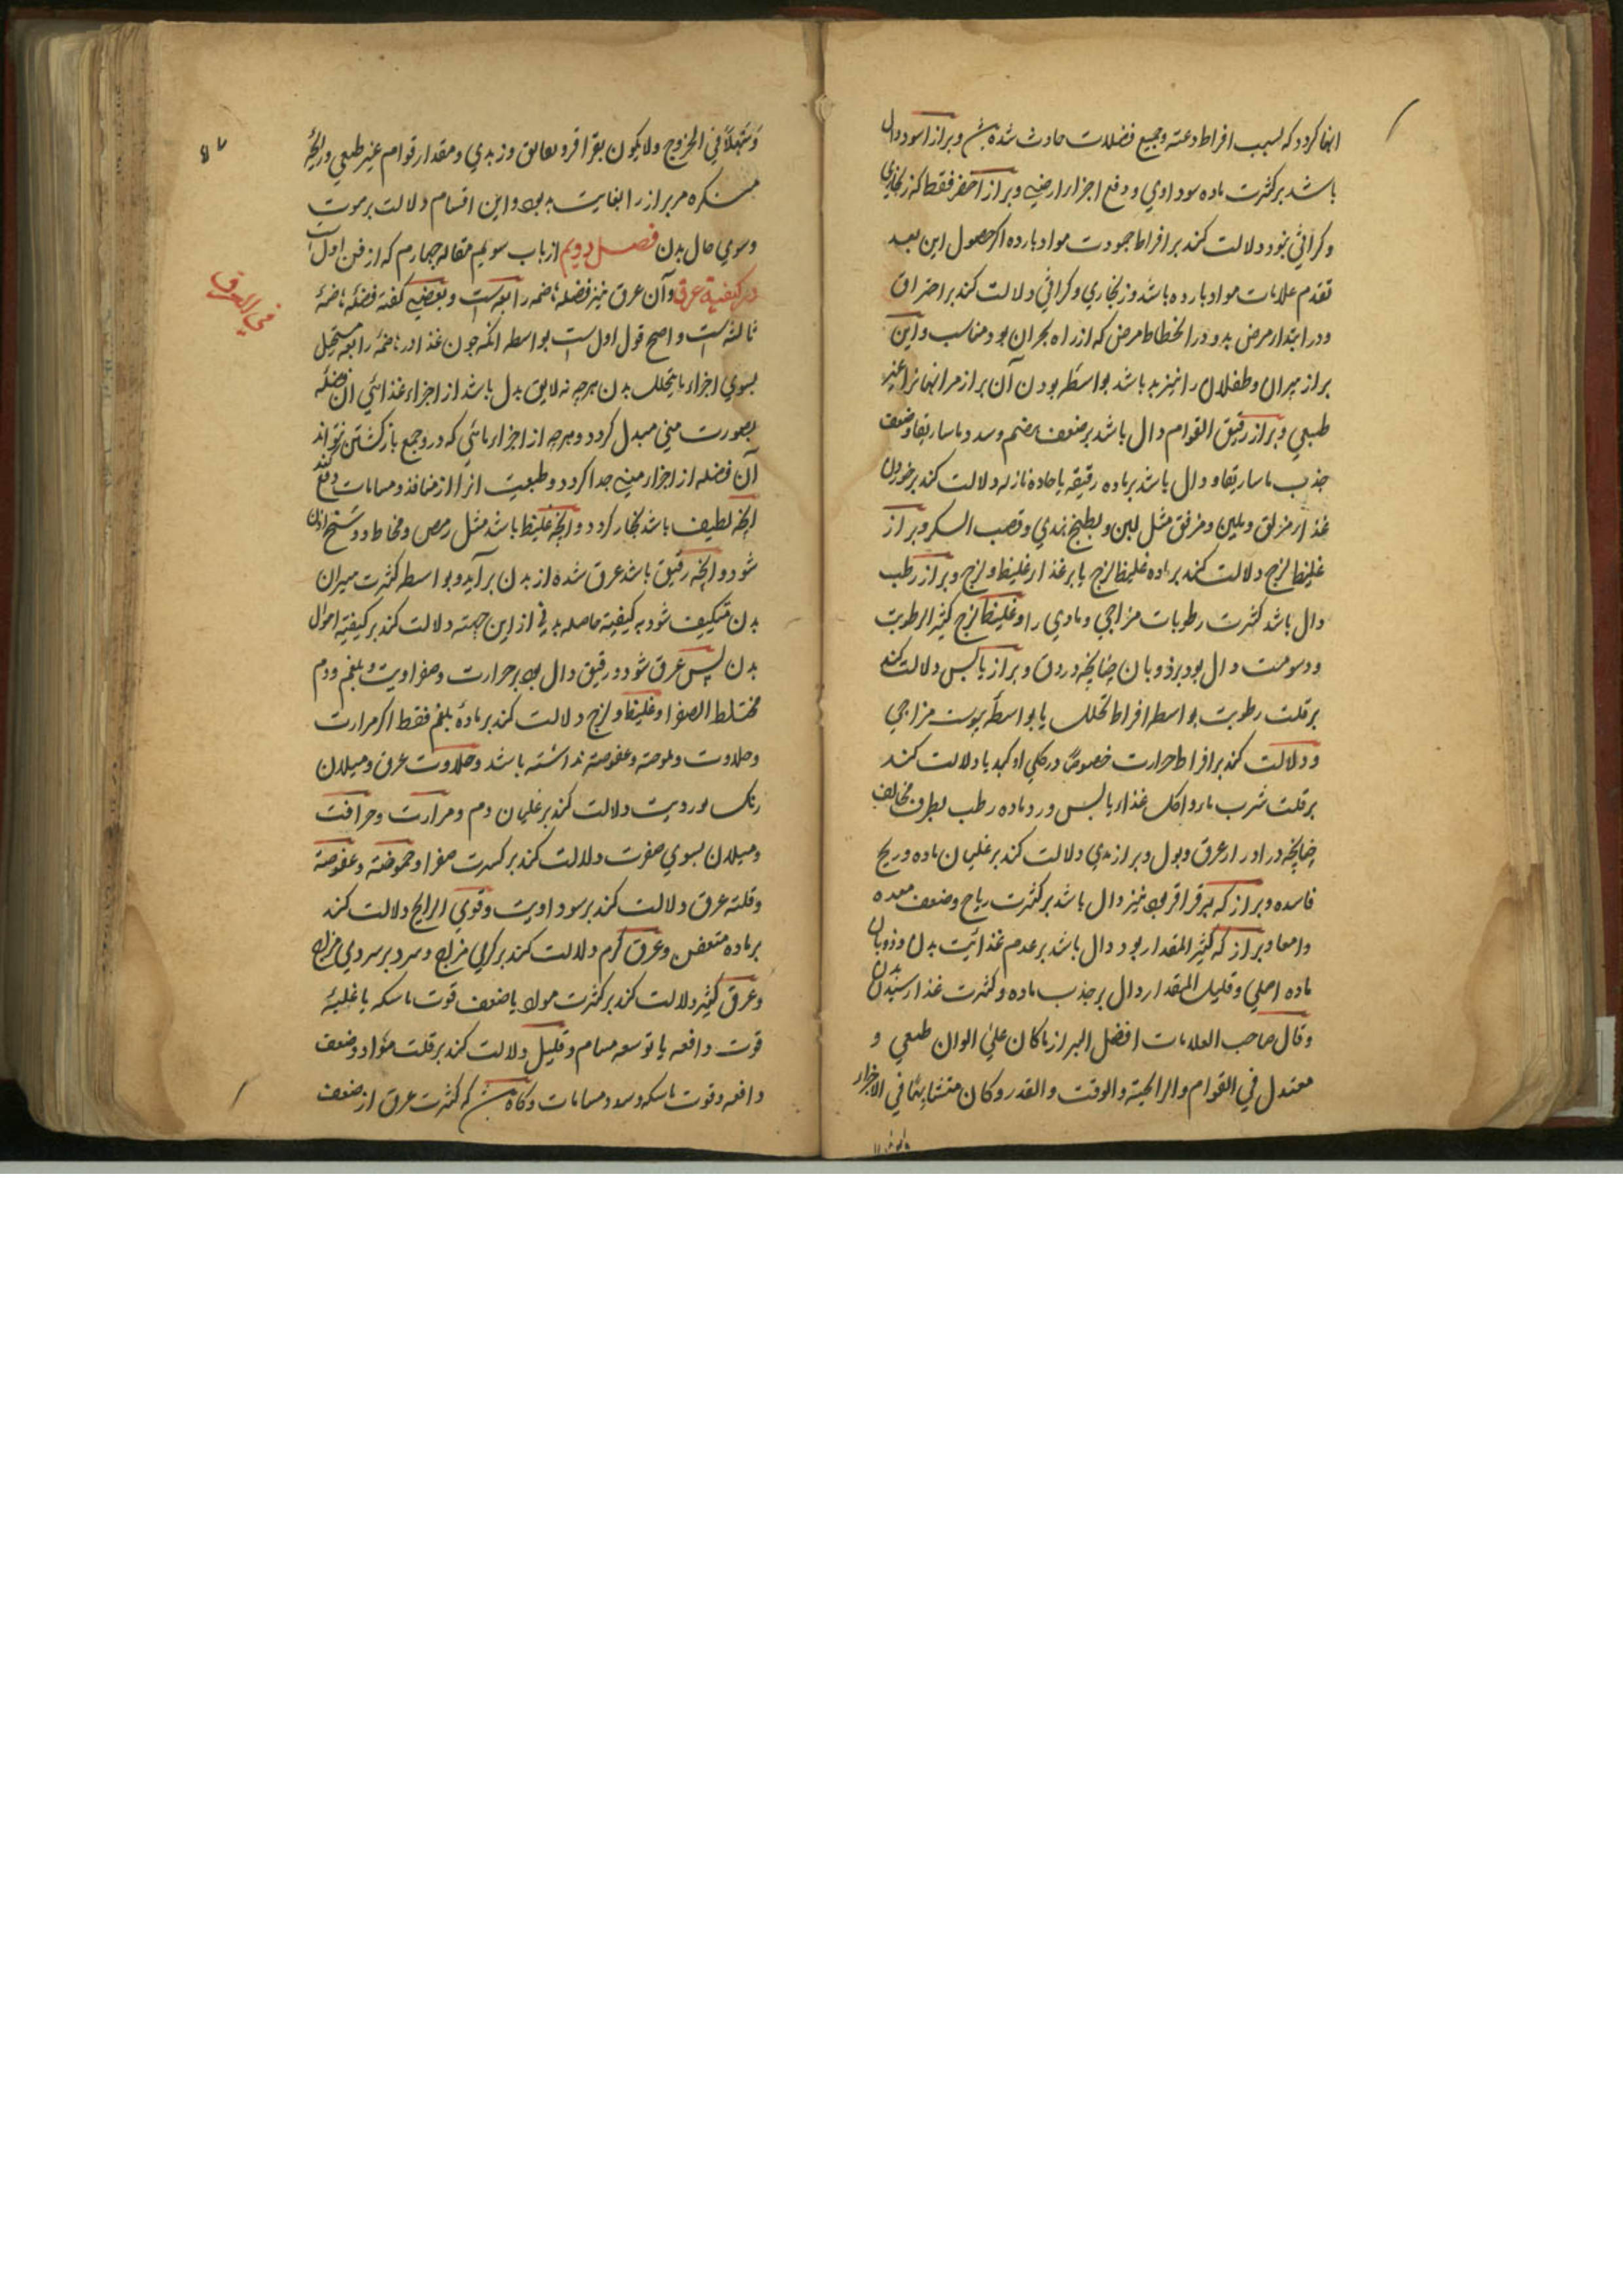 انها کردد که بسبب افراط دعته وجمیع فضلات حادث شده وبراز اسود دال
باشد بر کثرت ماده سوداوي ودفع اجزا ارضیه وبراز اخضر فقط که زنکاري
وکراثي بنود دلالت کند بر افراط جمودت مواد بارده اکر حصول این بعد
تقدم علامات مواد بارده باشد وزنجاري وکراثي دلالت کند بر احتراق
ودر ابتدار مرض بد ودر انحطاط مرض که از راه بحران بود مناسب واین
براز پیران وطفلان را نیز بد باشد بواسطه بودن آن براز مر انها را غیر
طبعي وبراز رقیق القوام دال باشد بر ضعف هضم وسدد ماساریقا وضعف
جذب ماساریقا ودال باشد بر ماده رقیقه یا حاده نازله دلالت کند بر خوردن
غذار مزلق وملین ومزلق مثل لبن وبطیخ هندي وقصب السکر وبراز
غلیظ لزج دلالت کند بر ماده غلیظ لزج یا بر غذار غلیظ ولزج وبراز رطب
دال باشد کثرت رطوبات مزاجي ومادي را وغلیظ لزج کثیر الرطوبت
ودسومت دال بود بر ذوبان چنانچه در دق وبراز یابس دلالت کند
بر قلت رطوبت بواسطه افراط تحلل یا بواسطه یبوست مزاجي
ودلالت کند بر افراط حرارت خصوصا در کلي او کبد یا دلالت کند
بر قلت شرب مار واکل غذار یابس ورد ماده رطب بطرف مخالف
چنانچه در ادرار عرق وبول وبراز زبدي دلالت کند بر غلیان ماده وریح
فاسده وبراز که بر قراقر بود نیز دال باشد بر کثرت ریاح وضعف معده
وامعا وبراز که کثیر المقدار بود دال باشد بر عدم غذائیت بدن وذوبان
ماده اصلي وقلیل المقدار دال بر جذب ماده وکثرت غذا رسیدن
وقال صاحب العلامات افضل البراز ما کان علي الوان طبعي و
معتدل في القوام والرایحة والوقت والقدر وکان متشابها في الاجزار
وسهلا في الخروج ولایکون بقراقر وبعایق وزبدي ومقدار قوام غیر طبعي ورایحه
منکره مر براز را بغایت بد بود واین اقسام دلالت بر موت
وسوي حال بدن فصل دویم از باب سویم مقاله چهارم که از فن اول است
در کیفیة عرق وآن عرق نیز فضله هاضمه رابعه است وبعضی کفته فضله هاضمه
ثالثه است واصح قول اول است بواسطه انکه چون غذا در هاضمه رابعه مستحیل
بسوي اجزاء ما یتحلل بدن هرچه نه لایق بدل باشد از اجزاء غذائي ان فضله
بصورت مني مبدل کردد وهرچه از اجزار مائي که در رجع بازکشتن نتواند
آن فضله از اجزار منیه جدا کردد وطبعیت انرا از منافذ ومسامات دفع کند
انچه لطیف باشد بخار کردد وانچه غلیظ باشد مثل رمص ومخاط ووسخ اذن
شود وانچه رقیق باشد عرق شده از بدن برآید وبواسطه کثرت سیران
بدن متکیف شود به کیفیة حاصله بدني از این جهته دلالت کند بر کیفیة احوال
بدن پس عرق شود ورقیق دال بود بر حرارت وصفراویت وبلغم ودم
مختلط الصفرا وغلیظ ولزج دلالت کند بر ماده بلغم فقط اکر مرارت
وحلاوت وملوحته وعفوصته نداشته باشد وحلاوت عرق ومیلان
رنک بوردیت دلالت کند بر غلیان دم ومرارت وحرافت
ومیلان بسوي صفرت دلالت کند بر کسرت صفرا وحموضة وعفوصة
وقلته عرق دلالت کند بر سوداویت وقوي الرایح دلالت کند
بر ماده متعفن وعرق کرم دلالت کند بر کرمي مزاج وسرد بر سردیي مزاج
وعرق کثیر دلالت کند بر کثرت مواد یا ضعف قوت ماسکه یا غلبه
قوت دافعه یا توسعه مسام وقلیل دلالت کند بر قلت مواد وضعف
دافعه وقوت ماسکه وسدد مسامات وکاه که کثرت عرق از ضعف
في العرق